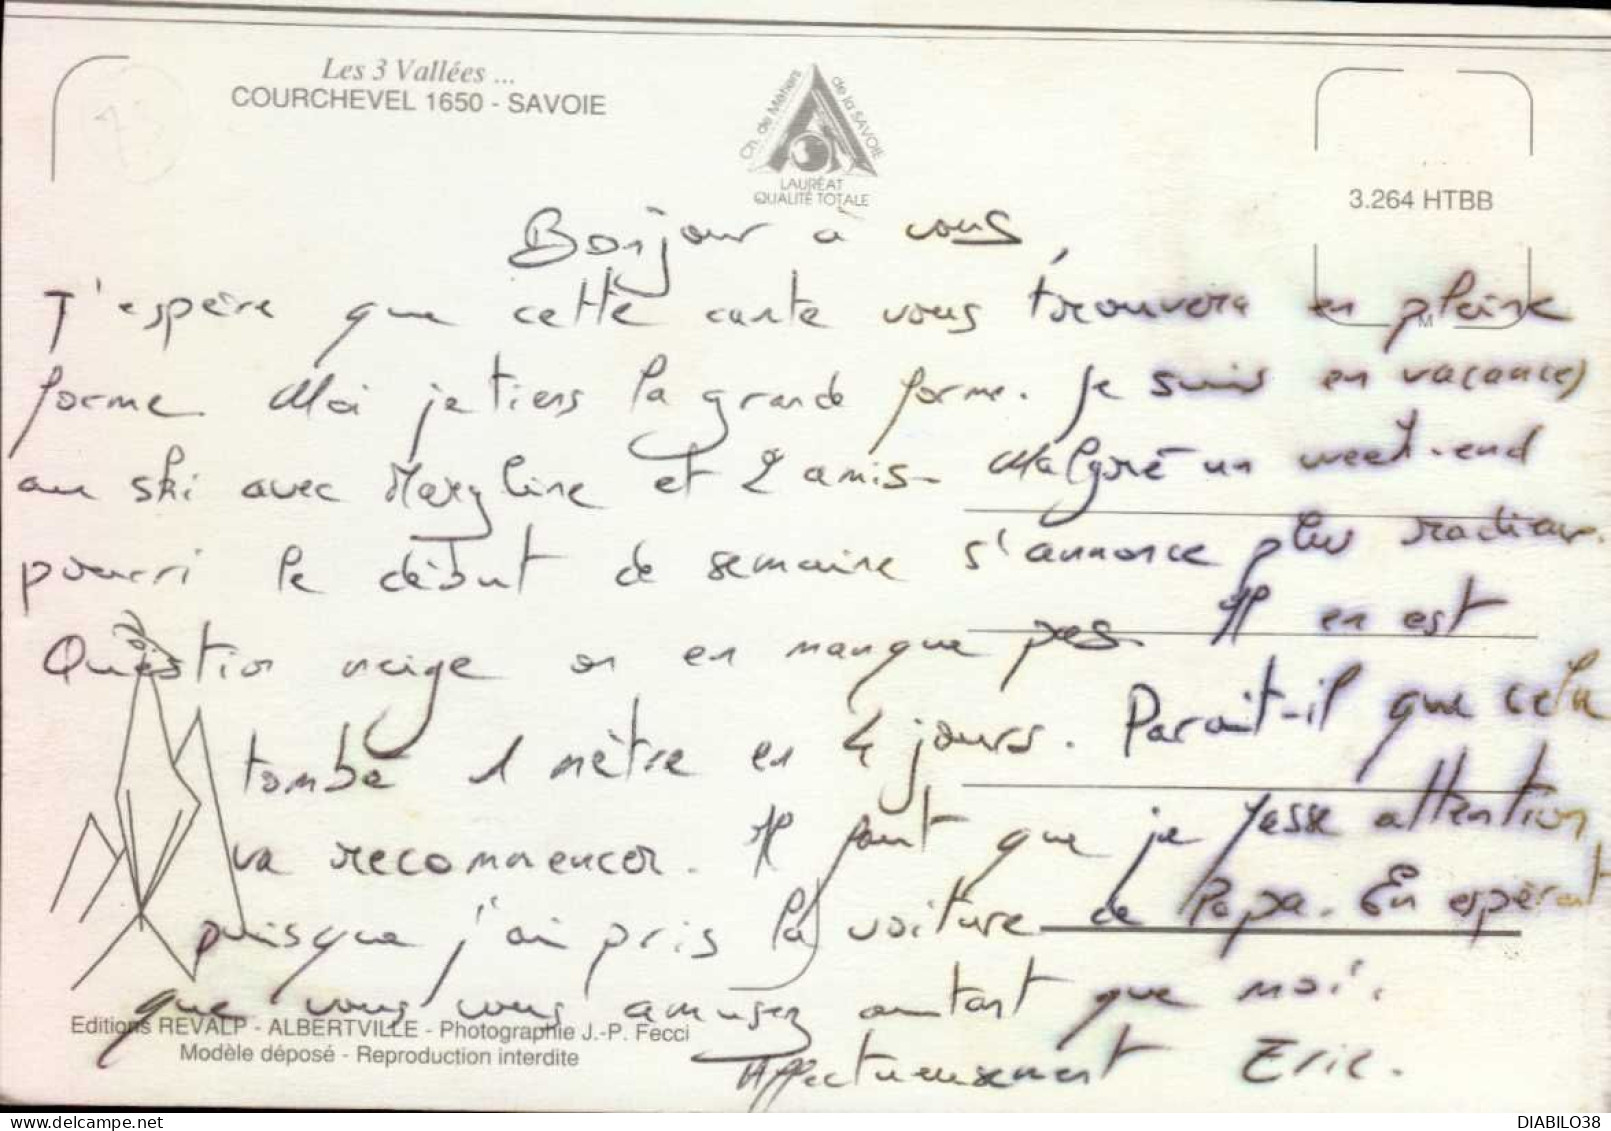 Les 3 Vallées ...
COURCHEVEL 1650 - SAVOIE
Ch. de Métiers de la SAVOIE
LAURÉAT
QUALITÉ TOTALE
3.264 HTBB
73
Bonjour à vous,
J'espère que cette carte vous trouvera en pleine
M
forme. Moi je tiens la grande forme. Je suis en vacances
au ski avec Maryline et 2 amis. Malgré un week-end
pourri le début de semaine s'annonce plus radieux.
Question neige on en manque pas. Il en est
tombé 1 mètre en 4 jours. Parait-il que cela
va recommencer. Il faut que je fasse attention
puisque j'ai pris la voiture de Papa. En espérant
que vous vous amusez autant que moi.
Editions REVALP - ALBERTVILLE - Photographie J.-P. Fecci
Modèle déposé - Reproduction interdite
Affectueusement Eric.
DIABILO38